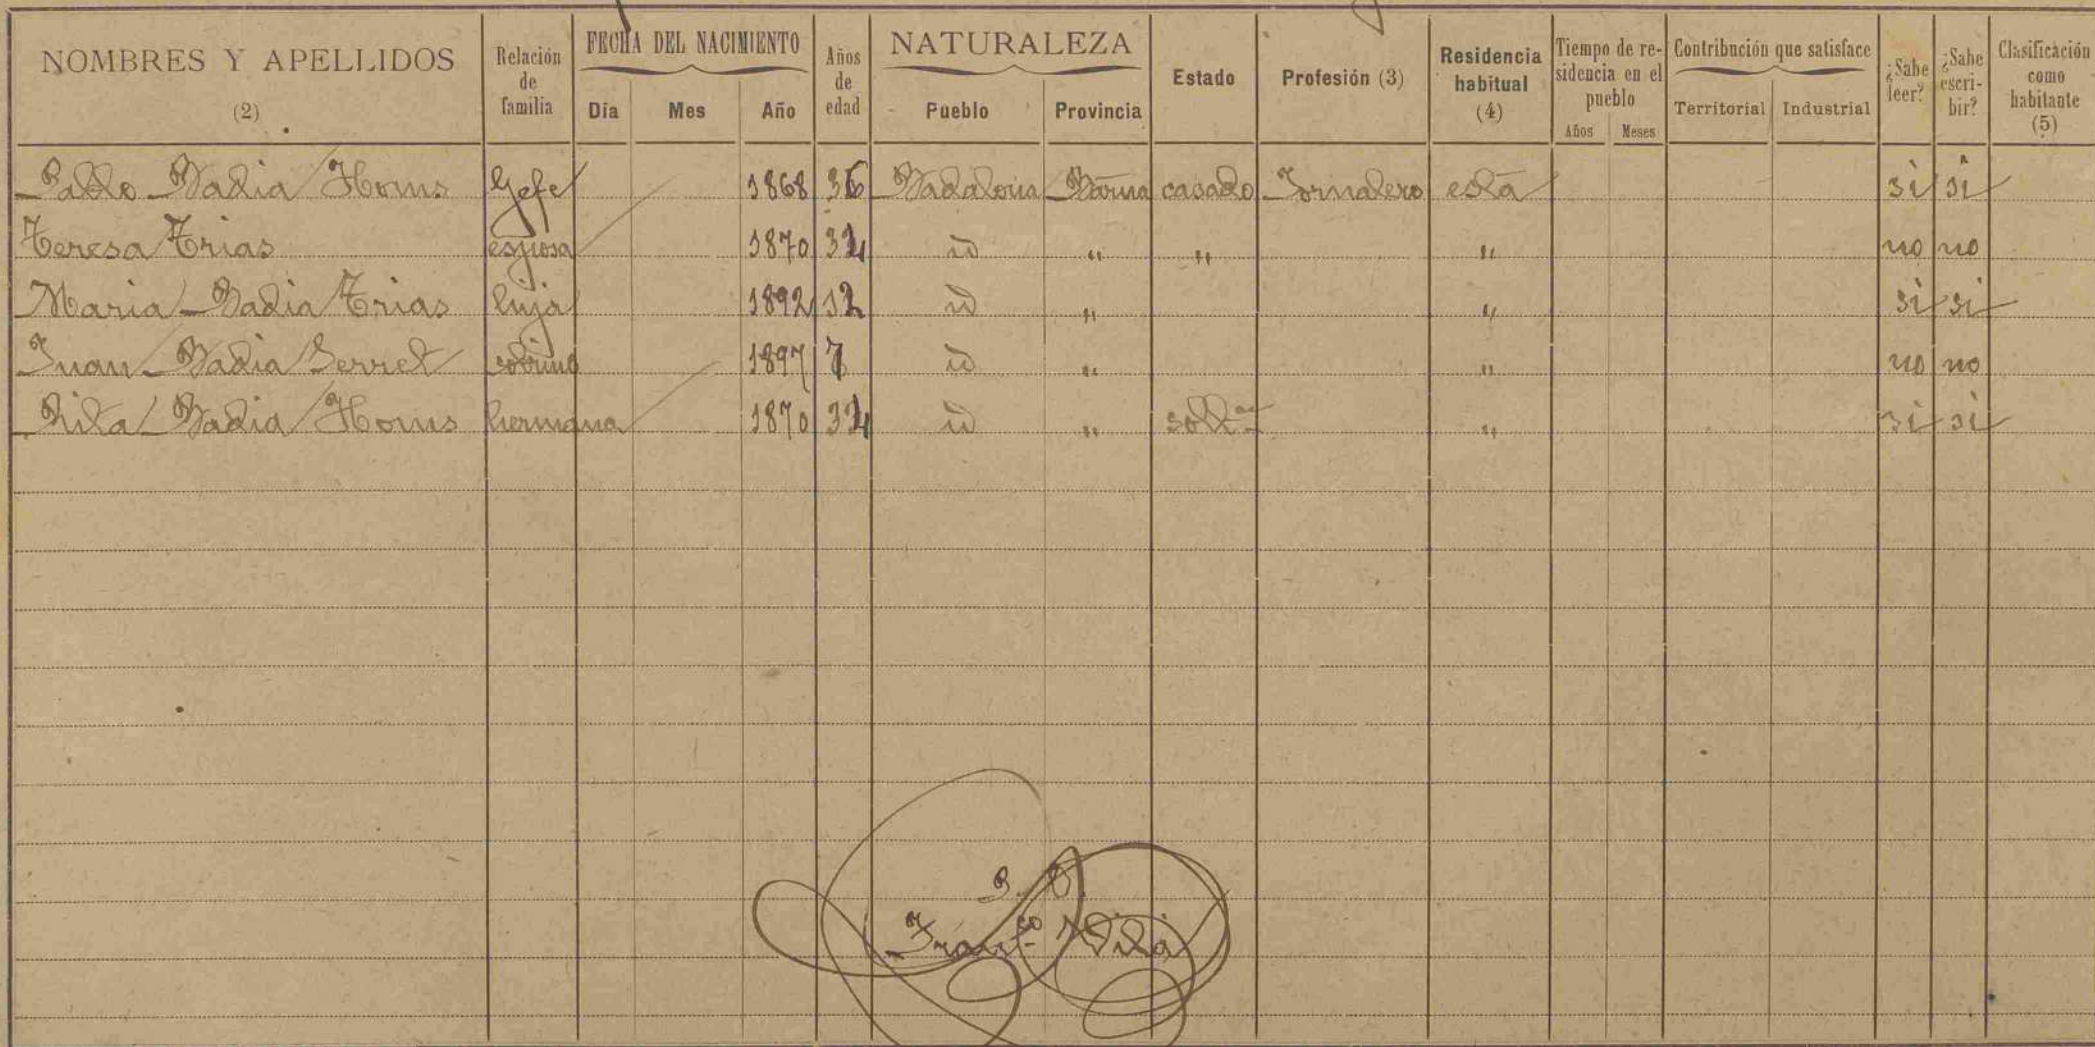 NOMBRES Y APELLIDOS (2) Relación de familia FECHA DEL NACIMIENTO Día Mes Año Años de edad NATURALEZA Pueblo Provincia Estado Profesión (3) Residencia habitual (4) Tiempo de residencia en el pueblo Años Meses Contribución que satisface Territorial Industrial ¿Sabe leer? ¿Sabe escribir? Clasificación como habitante (5)
Pablo Badia Homs Gefe 1868 36 Badalona Barna casado Jornalero esta si si
Teresa Trias esposa 1870 34 id " " " no no
Maria Badia Trias hija 1892 12 id " " si si
Juan Badia Serret sobrino 1897 7 id " " no no
Rita Badia Homs hermana 1870 34 id " solt.ª " si si
P. O.
Fran.co Vila